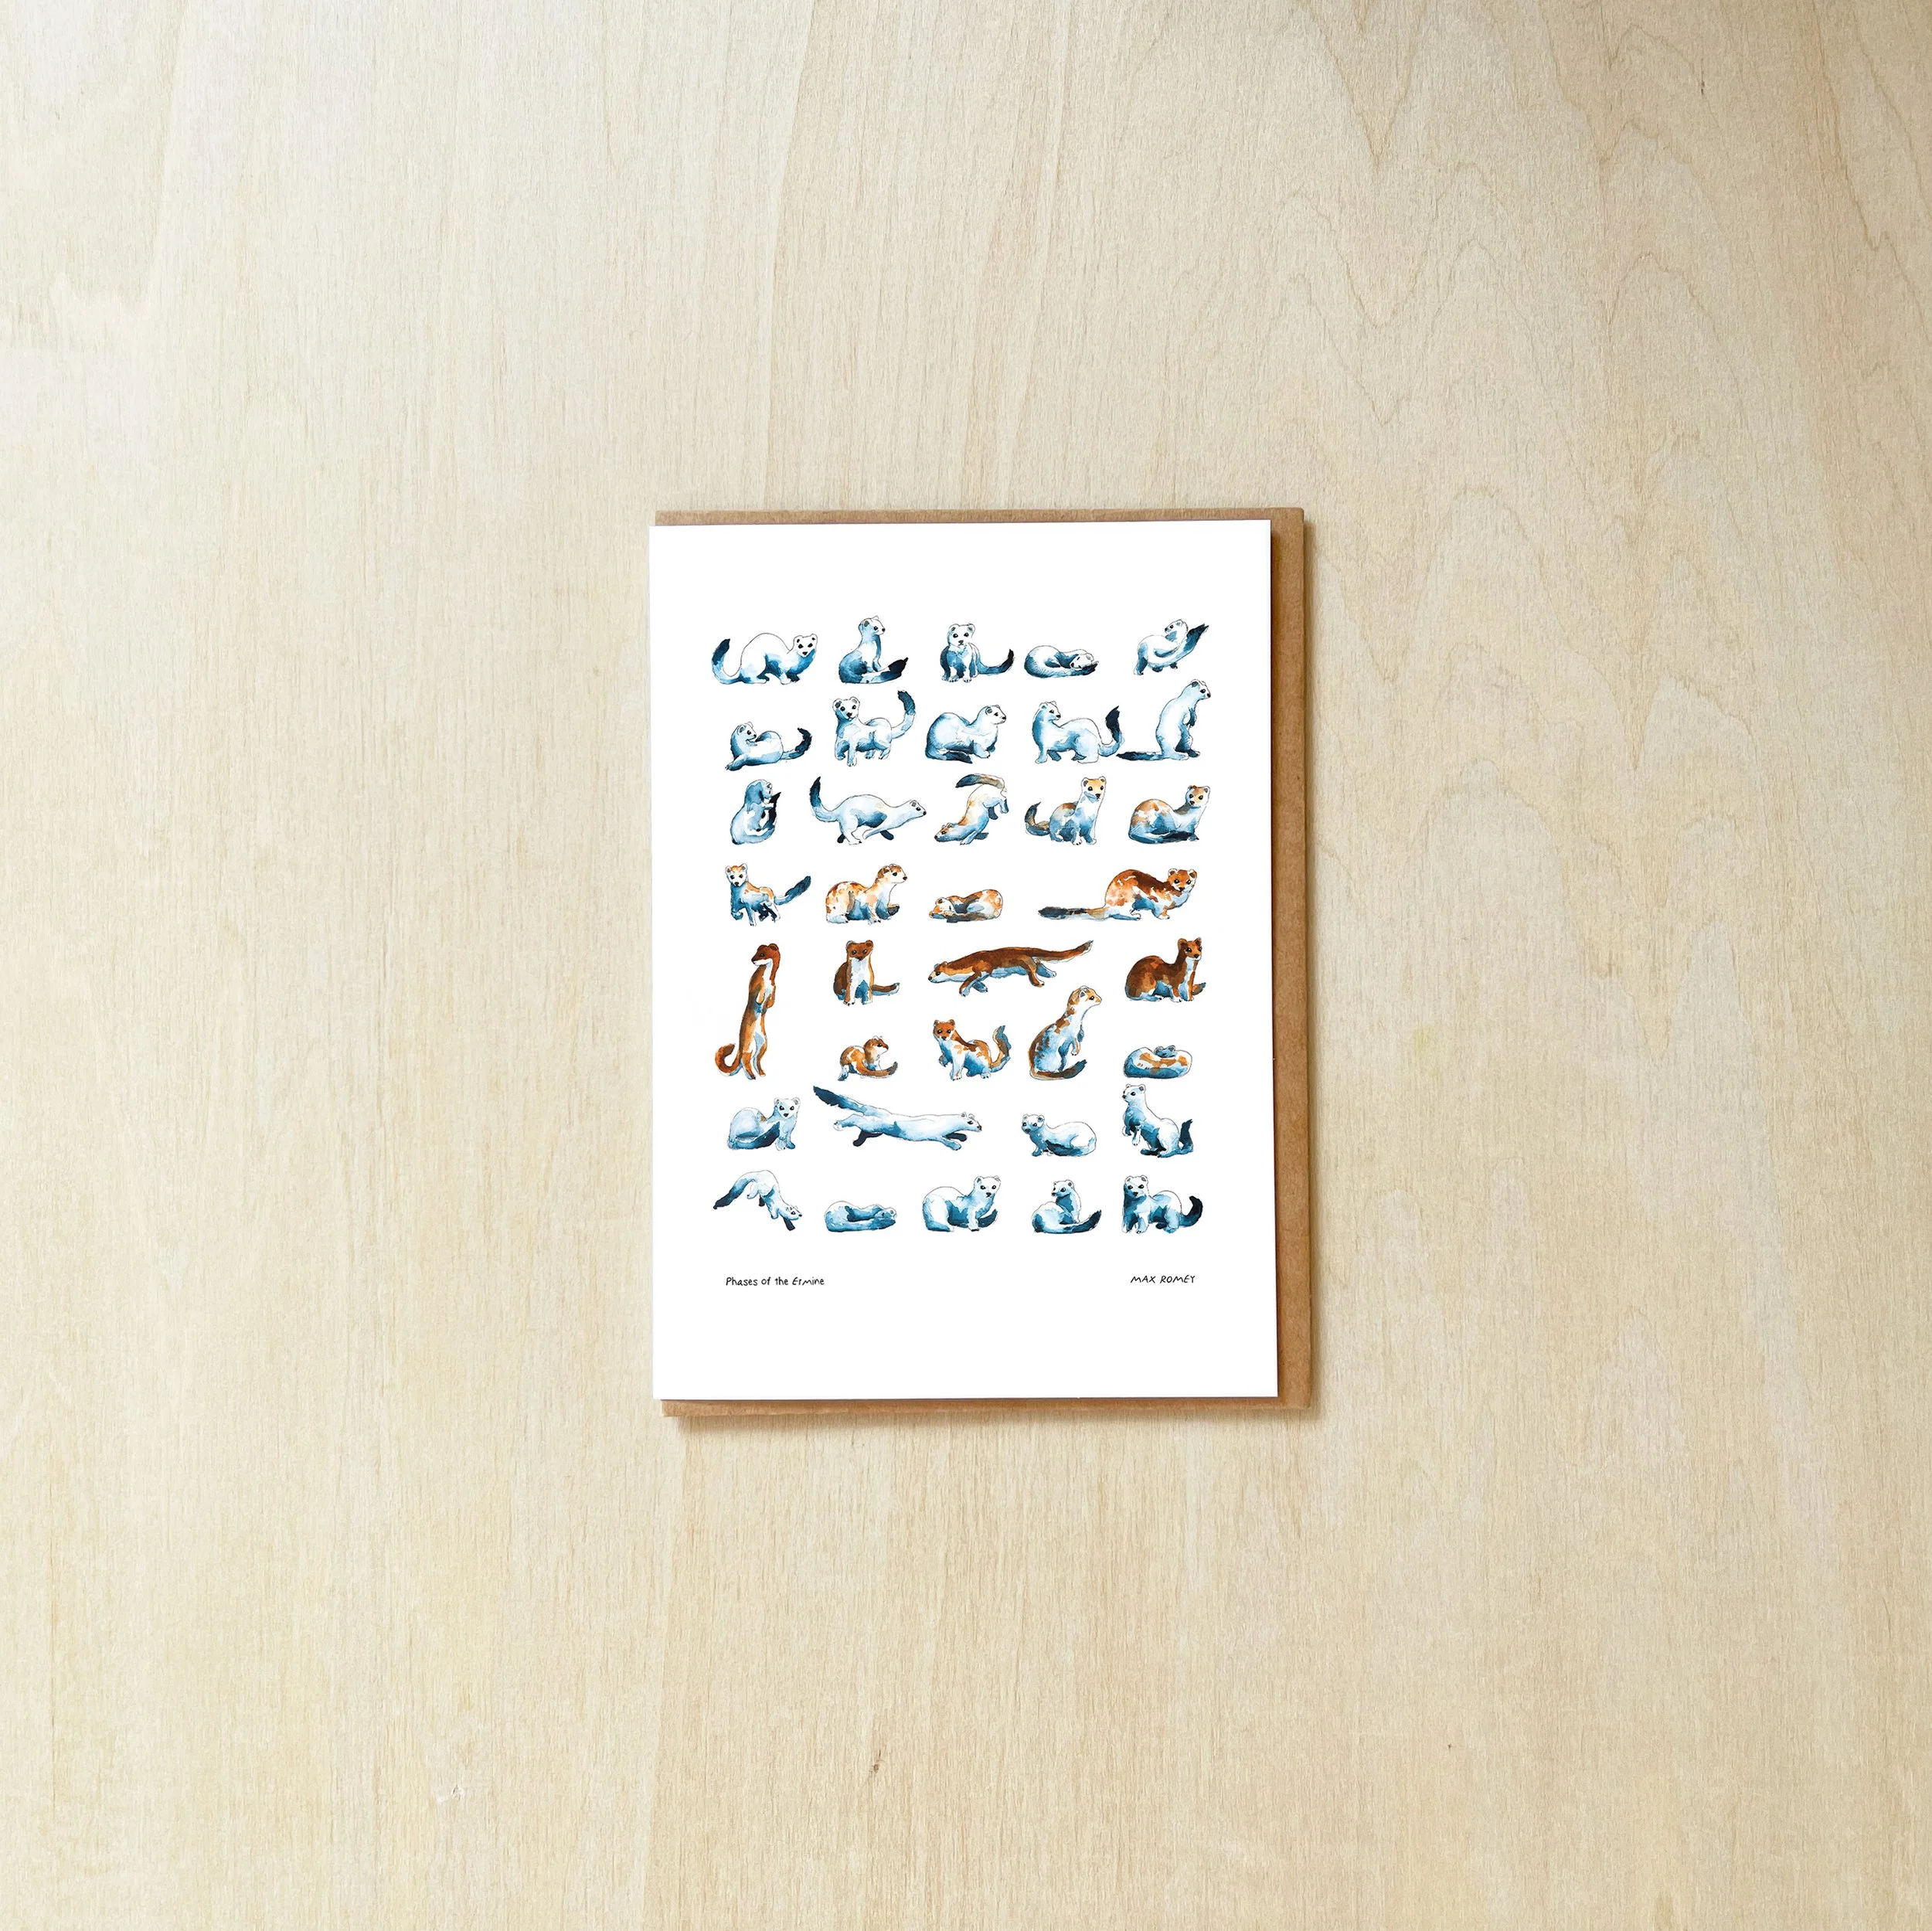 Phases of the Ermine
MAX ROMEY